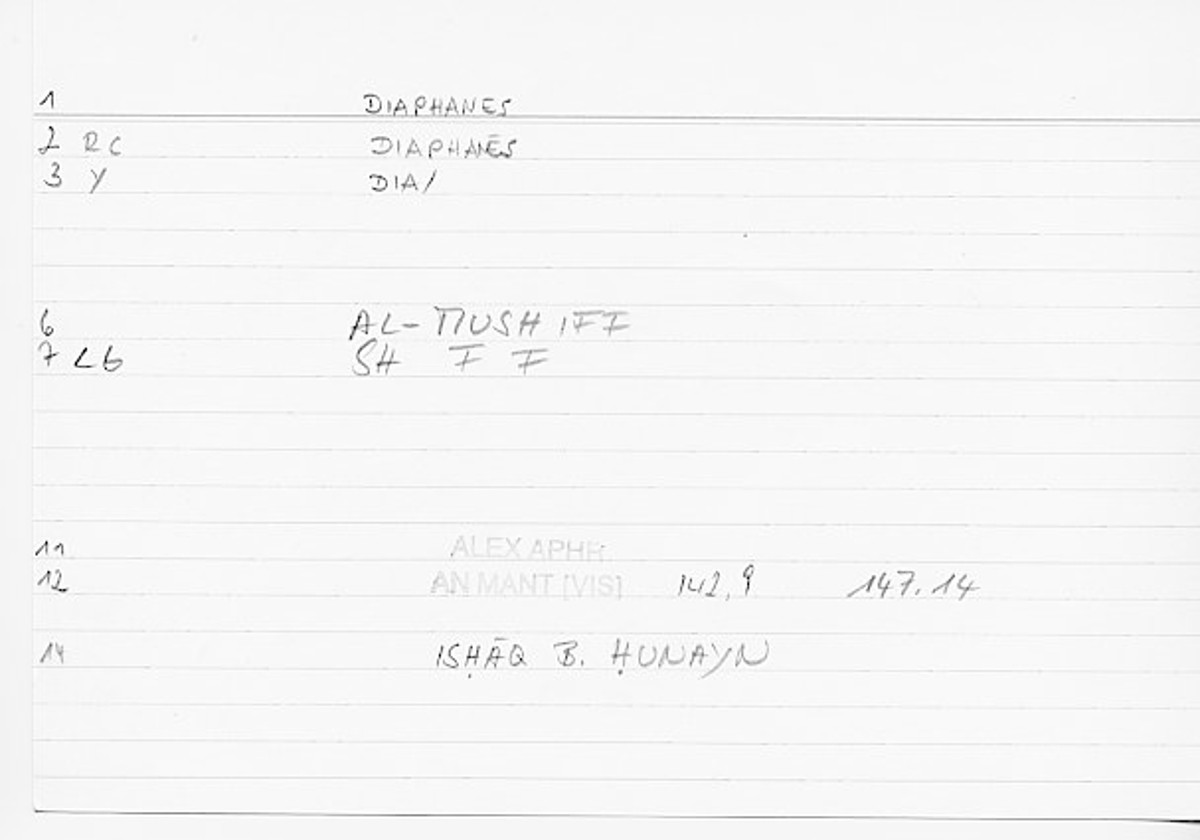 1 DIAPHANES
2 RC DIAPHANĒS
3 Y DIA/
6 AL-MUSHIFF
7 LG SH F F
11 ALEX APHR.
12 AN MANT [VIS] 142,9 147.14
14 ISḤĀQ B. ḤUNAYN